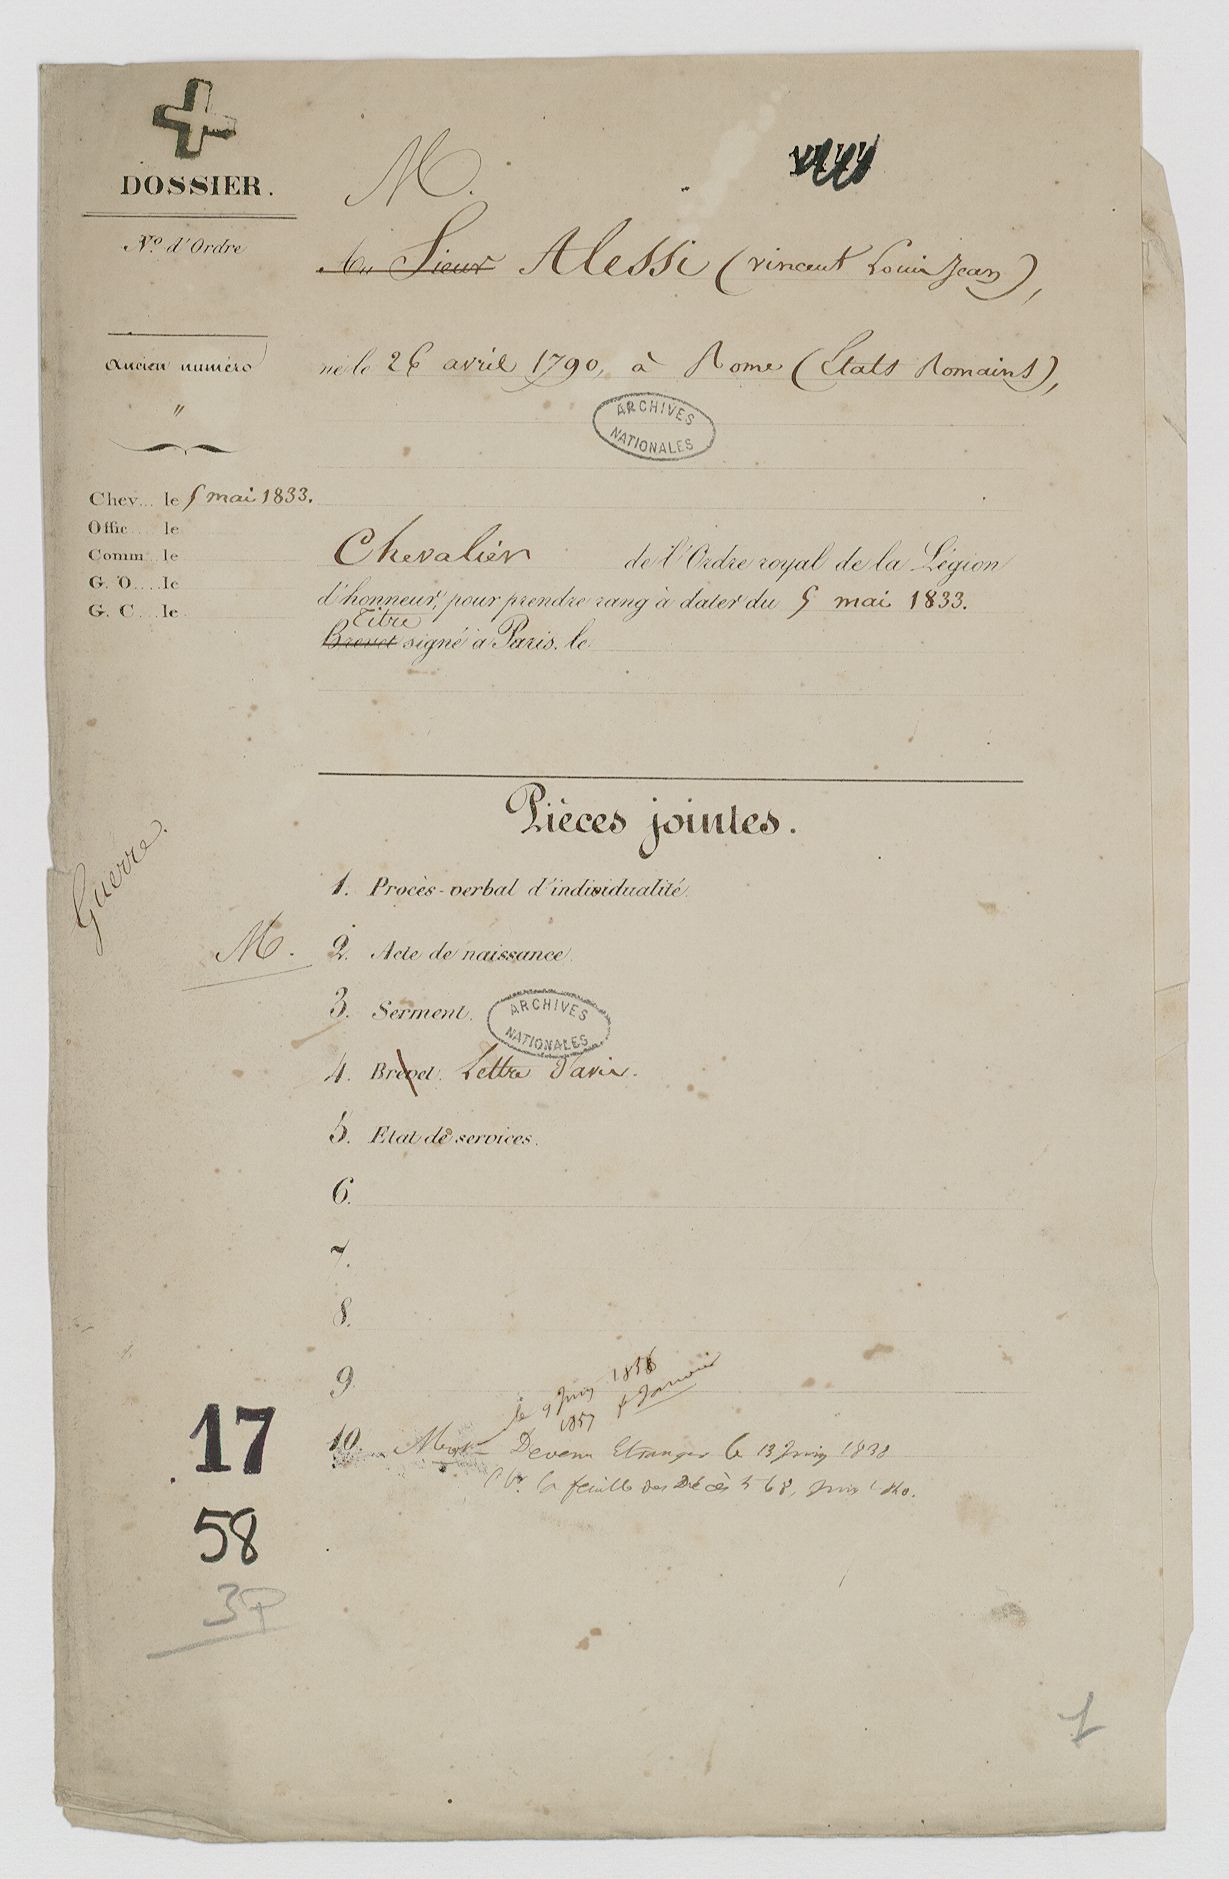 DOSSIER.
N.o d'Ordre
Ancien numéro
"
Chev... le 5 mai 1833.
Offic.... le
Comm.. le
G. O.... le
G. C.... le
Guerre.
M.
M.
Sieur Alessi (vincent Louis Jean),
né le 26 avril 1790, à Rome (Etats Romains),
ARCHIVES
NATIONALES
Chevalier de l'Ordre royal de la Légion
d'honneur, pour prendre rang à dater du 5 mai 1833.
Titre
Brevet signé à Paris, le
Pièces jointes.
1. Procès-verbal d'individualité.
2. Acte de naissance.
3. Serment.
ARCHIVES
NATIONALES
4. Brevet. Lettre d'avis.
5. Etat de services.
6.
7.
8.
9.
le 9 Juin
1857
10. Mort Devenu Etranger le 13 Juin 1838
la feuille des Décès
17
58